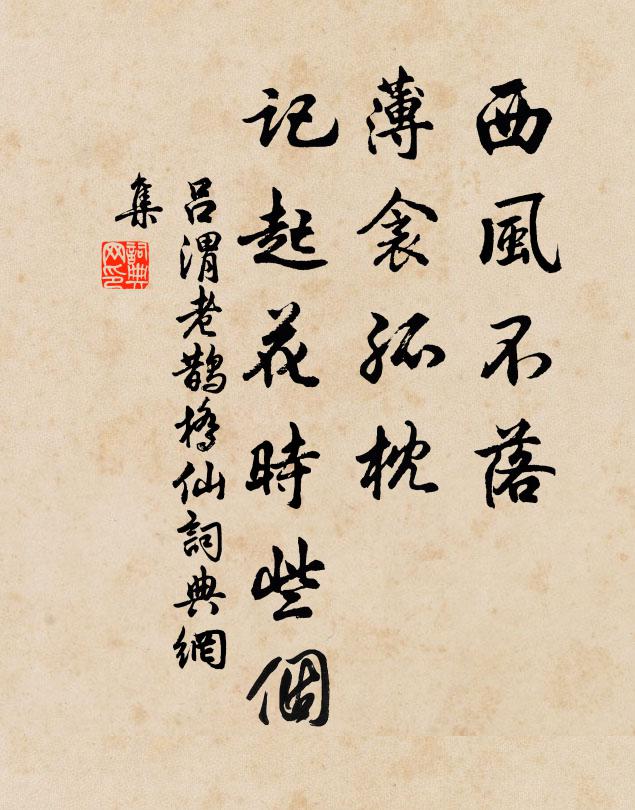 西風不落
薄衾孤枕
記起花時些個
吕渭老鵲橋仙詞典網
集
詞典
网印